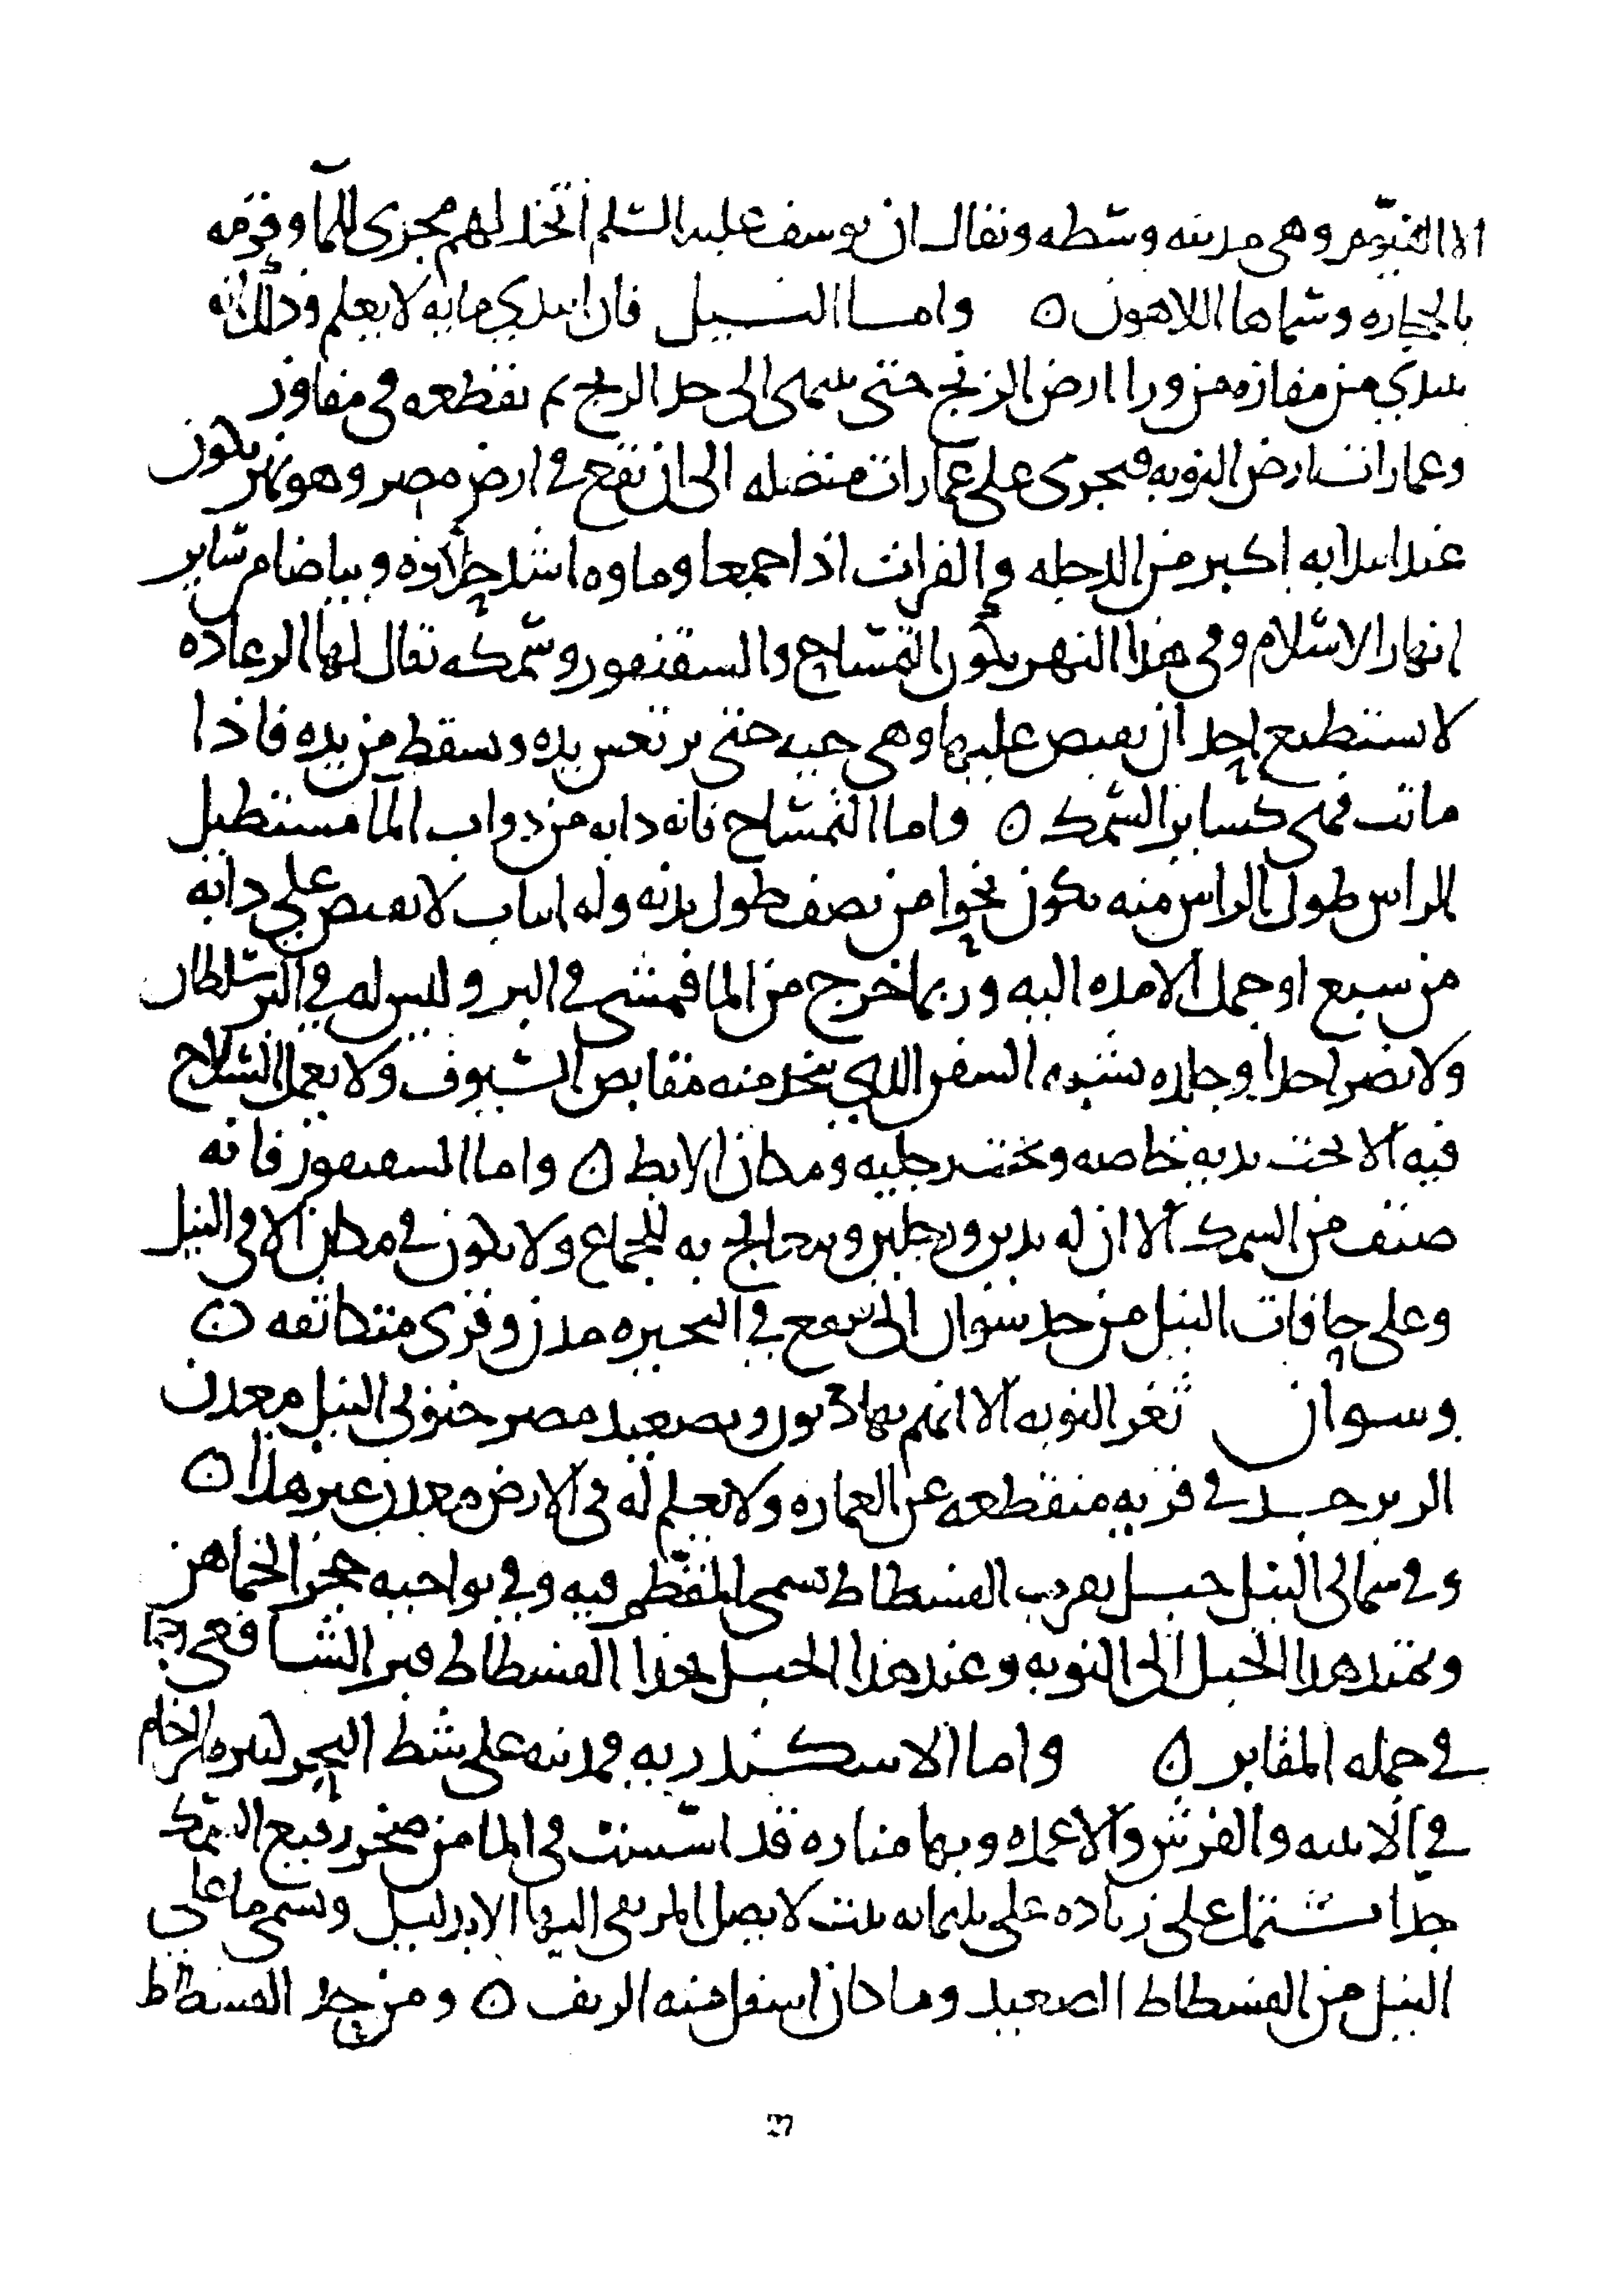 الا الفيوم وهى مدينه وسطه ويقال ان يوسف عليه السلم اتخذ لهم مجرى للمآ وقومه
بالحجاره وسماها اللاهون ٥ واما النيل فان ابتدي مايه لا يعلم وذلك انه
يبتدي من مفازه من ورا ارض الزنج حتى ينتهى الى حد الزنج ثم يقطعه فى مفاوز
وعمارات ارض النوبه فيجرى على عمارات متصله الى ان يقع فى ارض مصر وهو نهر يكون
عند ابتدايه اكبر من الدجله والفرات اذا جمعا وماوه اشد حلاوه وبياضا من ساير
انهار الاسلام وفى هذا النهر يكون التمساح والسقنقور وسمكه تقال لها الرعاده
لا يستطيع احد ان يقبض عليها وهى حيه حتى يرتعس يده ويسقط من يده فاذا
ماتت فهى كساير السمك ٥ واما التمساح فانه دابه من دواب المآ مستطيل
الراس طول الراس منه يكون نحوا من نصف طول بدنه وله انياب لا يقبض على دابه
من سبع او جمل الا مده اليه وربما خرج من الما فمشى فى البر وليس له فى البر سلطان
ولا يضر احدا وجلده يشبه السفن الذي يتخذ منه مقابض السيوف ولا يعمل السلاح
فيه الا تحت يديه خاصه وتحت رجليه ومكان الابط ٥ واما السقنقور فانه
صنف من السمك الا ان له يدين ورجلين ويتعالج به للجماع ولا يكون فى مكان الا فى النيل
وعلى حافات النيل من حد سوان الى يقع فى البحيره مدن وقرى متكاثفه ٥
وسوان ثغر النوبه الا انهم مهادنون وبصعيد مصر جنوبى النيل معدن
الزبرجد فى قريه منقطعه عن العماره ولا يعلم له فى الارض معدن غير هذا ٥
وفى شمالى النيل جبل بقرب الفسطاط يسمى المقطم فيه وفى نواحيه حجر الخماهن
ويمتد هذا الجبل الى النوبه وعند هذا الجبل بحذا الفسطاط قبر الشافعى
فى جمله المقابر ٥ واما الاسكندريه فمدينه على شط البحر كثيره الرخام
فى الابنيه والفرش والاعمده وبها مناره قد اسست فى الما من صخر رفيع السمك
جدا تشتمل على زياده على ثلثمايه بيت لا يصل المرتقى اليها الا بدليل ويسمى ما على
النيل من الفسطاط الصعيد وما كان اسفل منه الريف ٥ ومن حد الفسطاط